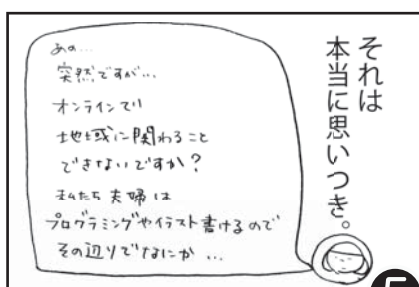 それは
本当に思いつき。
あの…
突然ですが…
オンラインで
地域に関わること
できないですか？
私たち夫婦は
プログラミングやイラスト書けるので
その辺りでなにか…